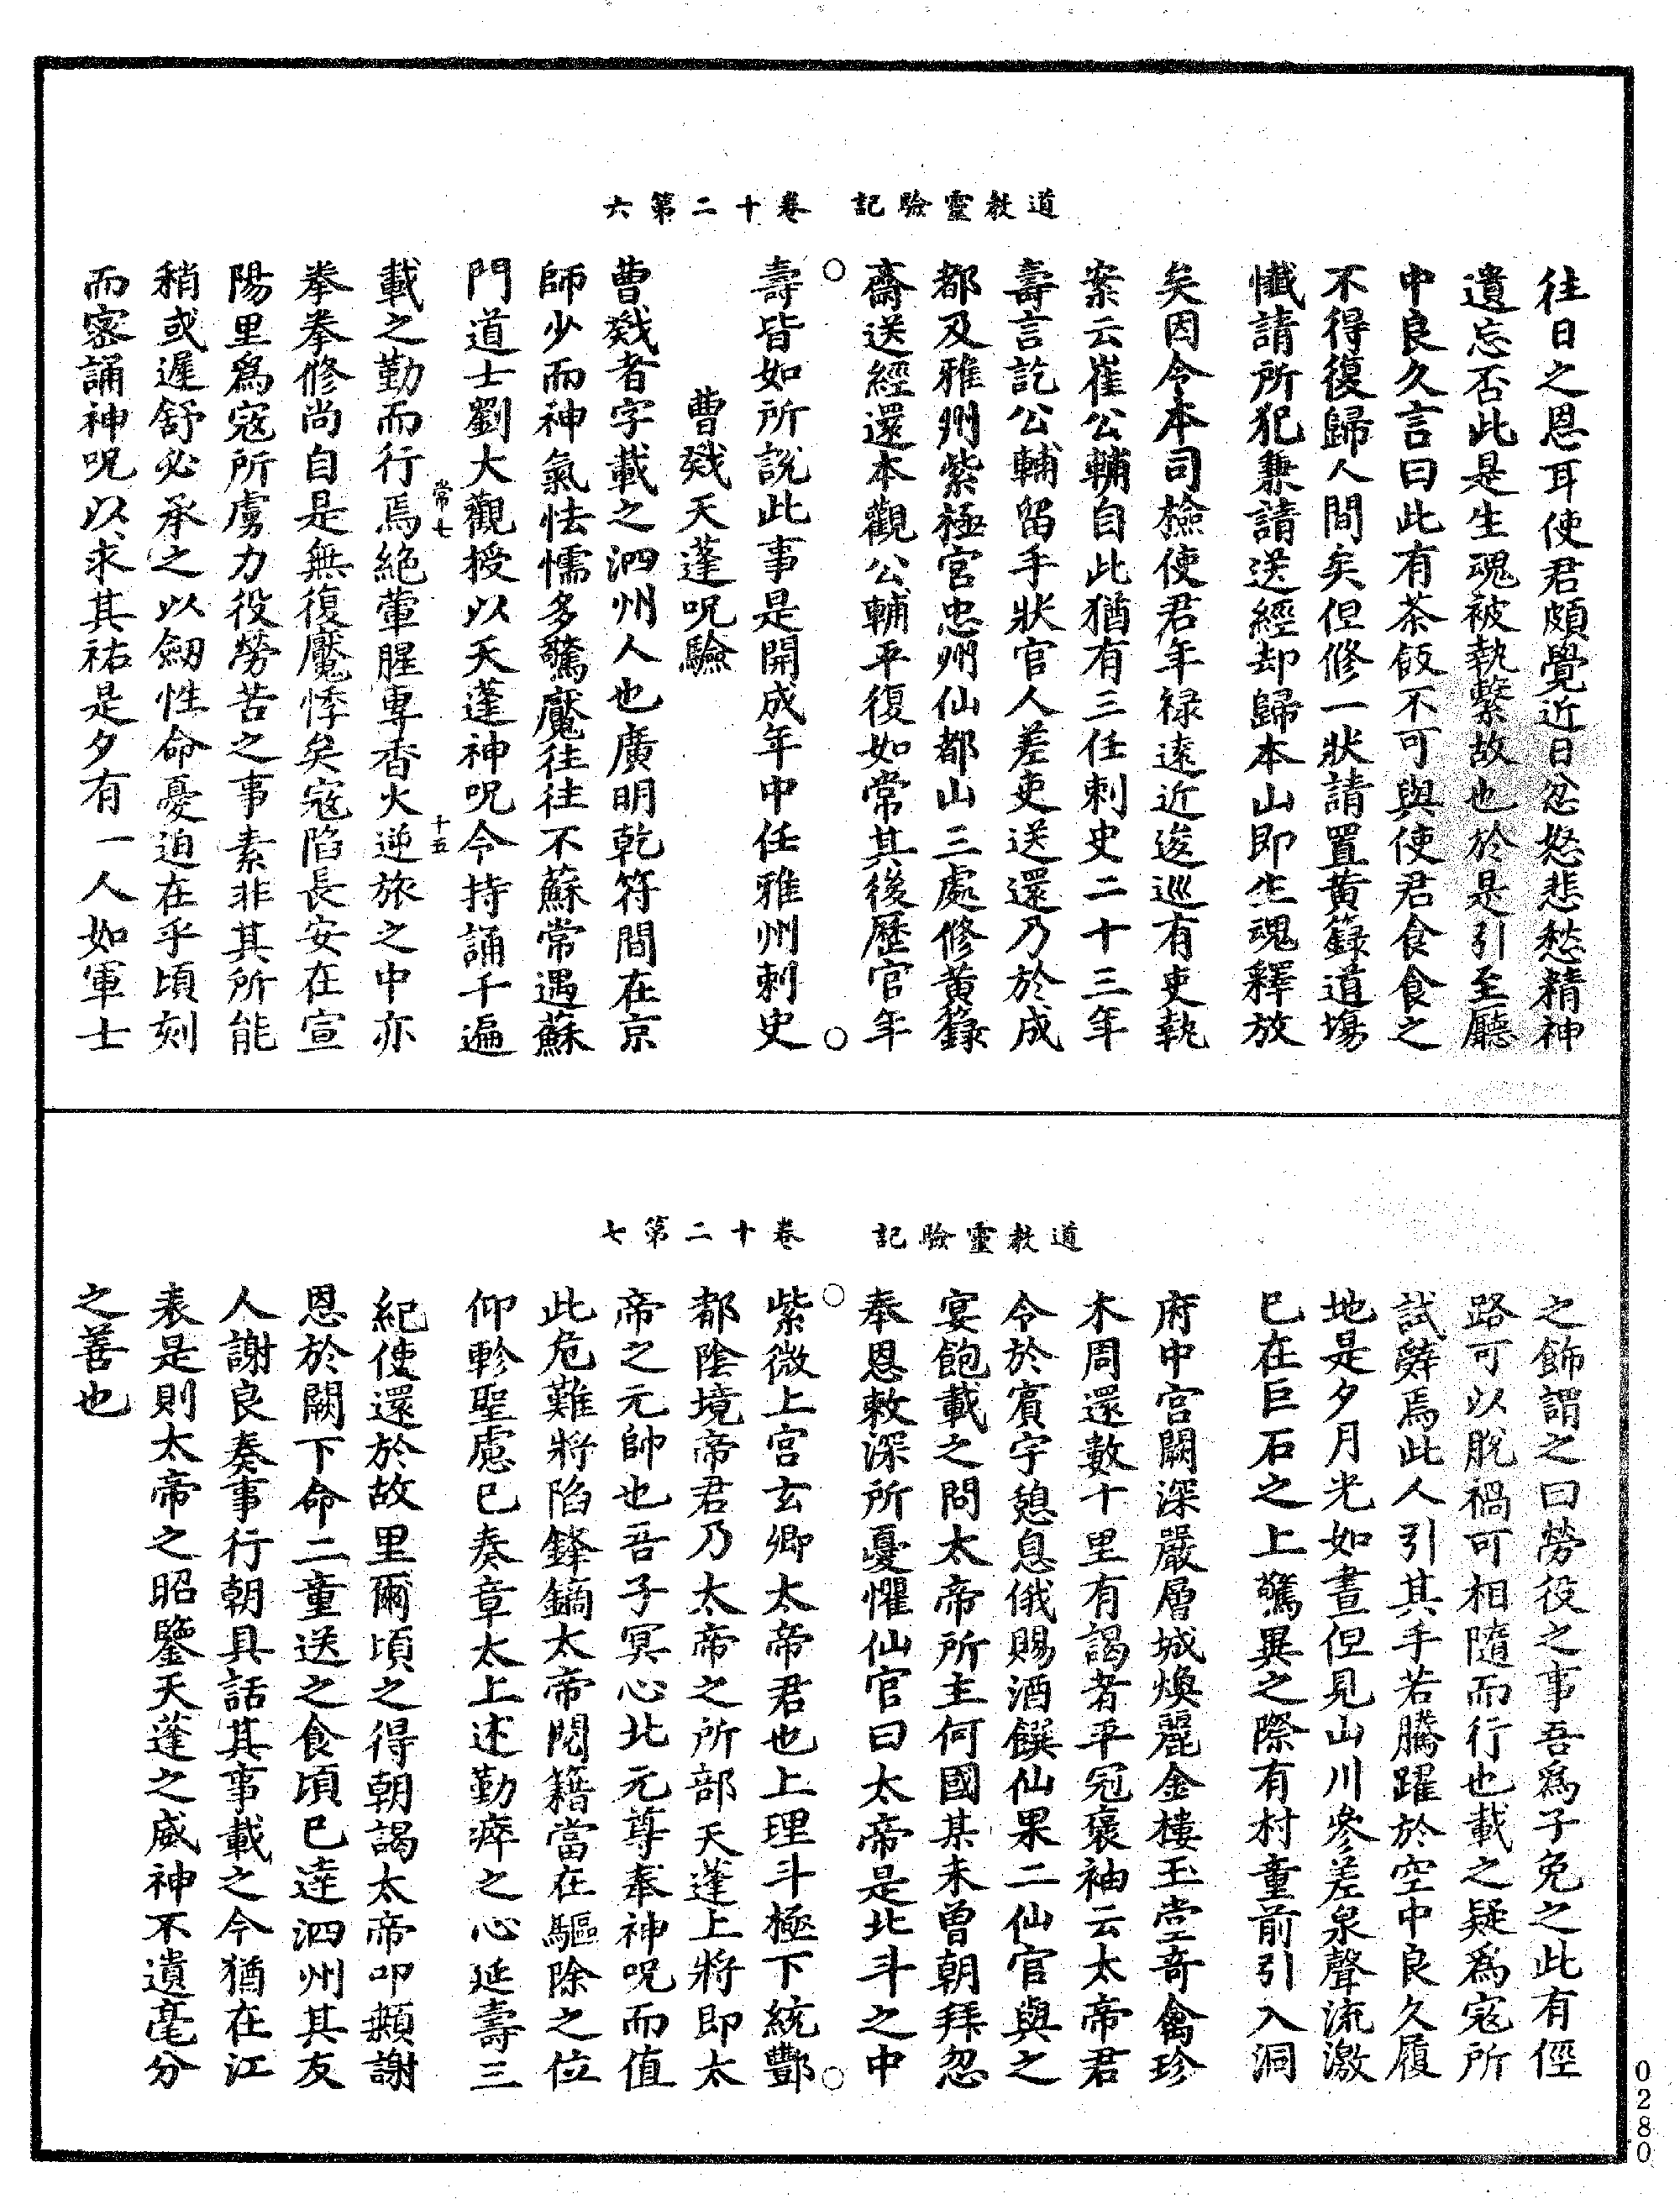 道教靈驗記　卷十二第六
往日之恩耳使君頗覺近日忿怒悲愁精神
遺忘否此是生魂被執繫故也於是引至廳
中良久言曰此有茶飯不可與使君食食之
不得復歸人間矣但修一狀請置黃籙道場
懺請所犯兼請送經却歸本山即生魂釋放
矣因令本司檢使君年祿遠近逡巡有吏執
案云崔公輔自此猶有三任刺史二十三年
壽言訖公輔留手狀官人差吏送還乃於成
都及雅州紫極宮忠州仙都山三處修黃籙
齋送經還本觀公輔平復如常其後歷官年
壽皆如所說此事是開成年中任雅州刺史
曹戣天蓬呪驗
曹戣者字載之泗州人也廣明乾符間在京
師少而神氣怯懦多驚魘往往不蘇常遇蘇
門道士劉大觀授以天蓬神呪令持誦千遍
常七　十五
載之勤而行焉絕葷腥專香火逆旅之中亦
拳拳修尚自是無復魘悸矣寇陷長安在宣
陽里爲寇所虜力役勞苦之事素非其所能
稍或遲舒必承之以劒性命憂迫在乎頃刻
而密誦神呪以求其祐是夕有一人如軍士
道教靈驗記　卷十二第七
之飾謂之曰勞役之事吾爲子免之此有徑
路可以脫禍可相隨而行也載之疑爲寇所
試辭焉此人引其手若騰躍於空中良久履
地是夕月光如晝但見山川參差泉聲流激
已在巨石之上驚異之際有村童前引入洞
府中宮闕深嚴層城煥麗金樓玉堂奇禽珍
木周還數十里有謁者平冠褒袖云太帝君
令於賓宇憩息俄賜酒饌仙果二仙官與之
宴飽載之問太帝所主何國某未曾朝拜忽
奉恩敕深所憂懼仙官曰太帝是北斗之中
紫微上宮玄卿太帝君也上理斗極下統酆
都陰境帝君乃太帝之所部天蓬上將即太
帝之元帥也吾子冥心北元尊奉神呪而值
此危難將陷鋒鏑太帝閱籍當在驅除之位
仰軫聖慮已奏章太上述勤瘁之心延壽三
紀使還於故里爾頃之得朝謁太帝叩顙謝
恩於闕下命二童送之食頃已達泗州其友
人謝良奏事行朝具話其事載之今猶在江
表是則太帝之昭鑒天蓬之威神不遺毫分
之善也
0280